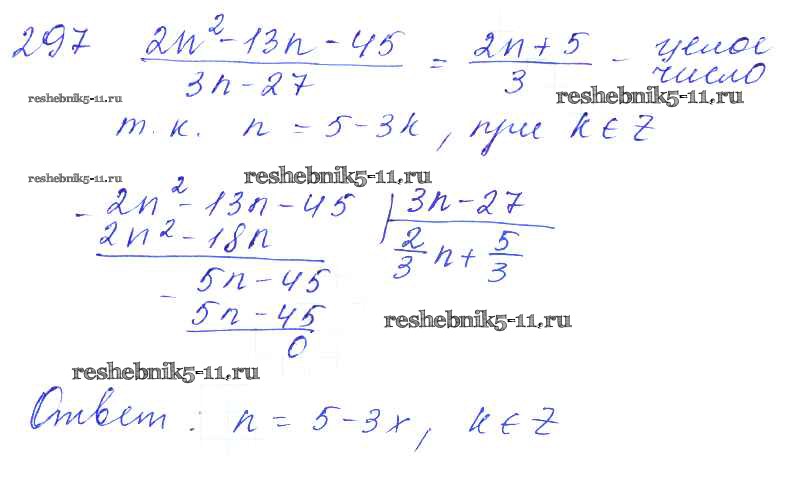 297 (2n² - 13n - 45)/(3n - 27) = (2n + 5)/3 - целое число
reshebnik5-11.ru reshebnik5-11.ru
т.к. n = 5 - 3k, при k ∈ Z
reshebnik5-11.ru reshebnik5-11.ru
- 2n² - 13n - 45 | 3n - 27
2n² - 18n 2/3 n + 5/3
- 5n - 45
5n - 45
reshebnik5-11.ru
0
reshebnik5-11.ru
Ответ: n = 5 - 3x, k ∈ Z